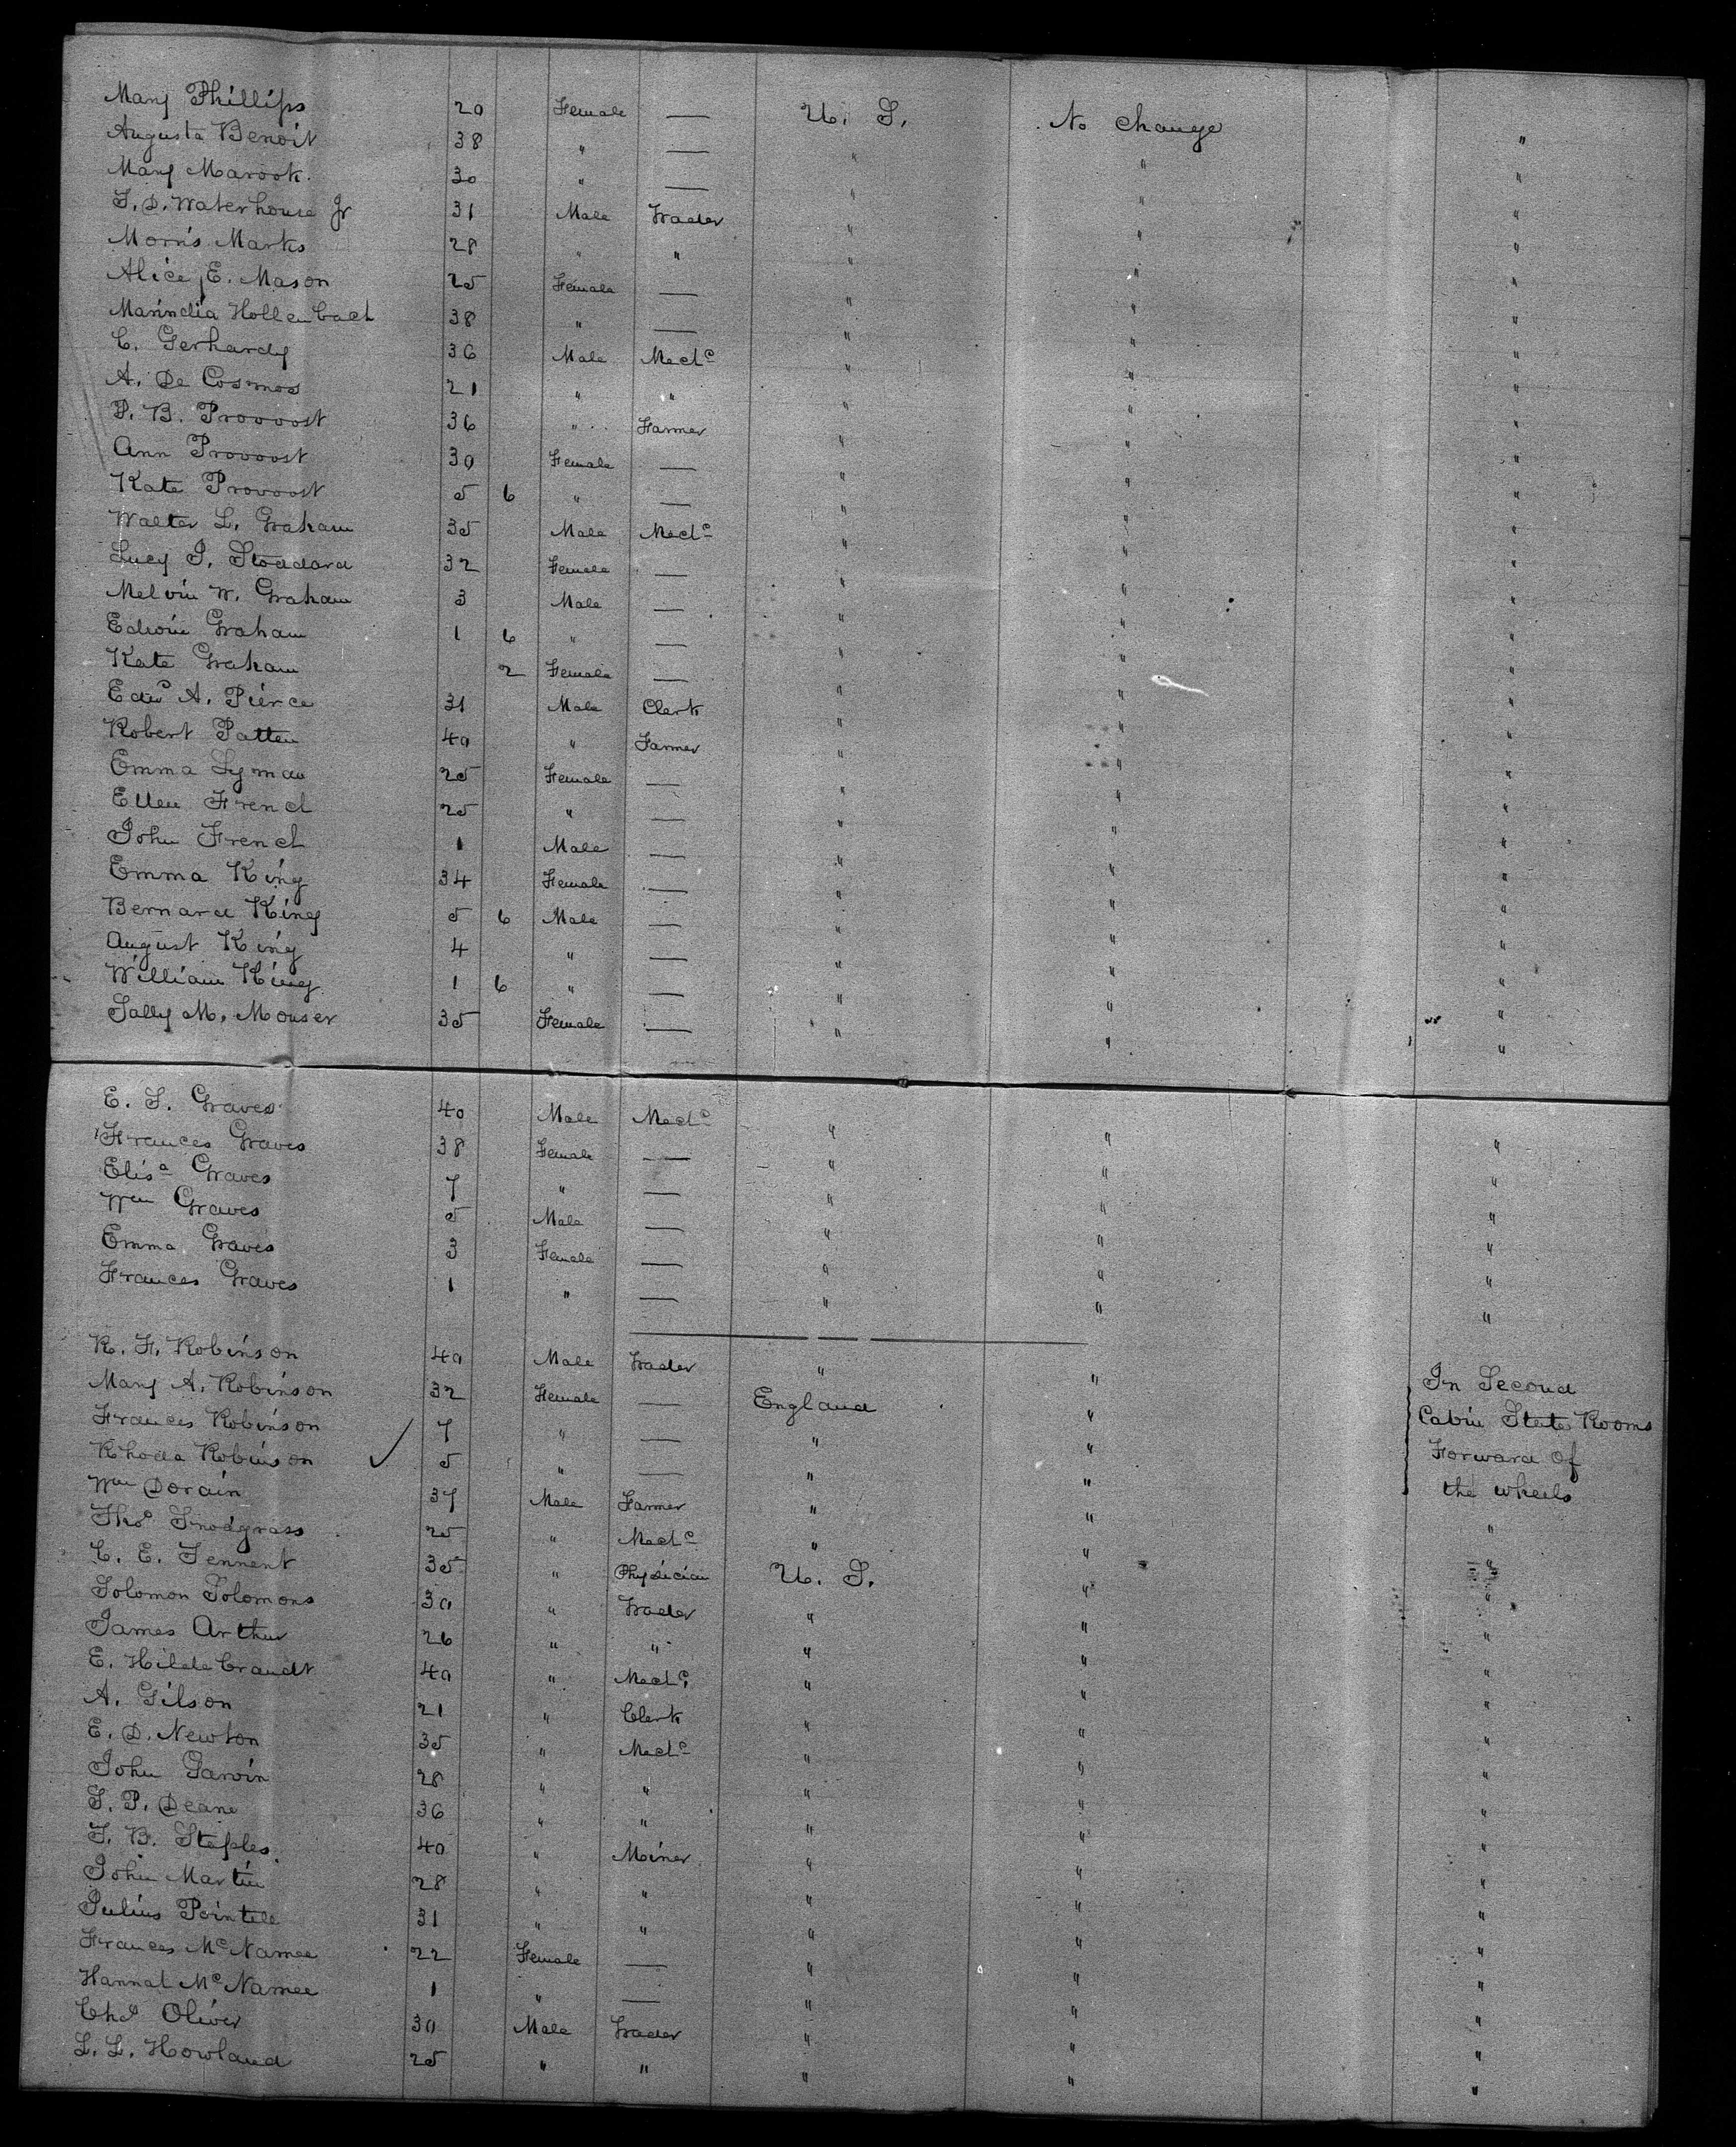 Mary Phillips 20 Female — U. S. No change "
Augusta Benoit 38 " — " " "
Mary Marook. 30 " — " " "
S. D. Waterhouse Jr 31 Male Trader " " "
Morris Marks 28 " " " " "
Alice E. Mason 25 Female — " " "
Marindia Hollenbach 38 " — " " "
C. Gerhardy 36 Male Mechc " " "
A. De Cosmos 21 " " " " "
P. B. Provoost 36 " Farmer " " "
Ann Provoost 30 Female — " " "
Kate Provoost 5 6 " — " " "
Walter L. Graham 35 Male Mechc " " "
Lucy J. Stoddard 32 Female — " " "
Melvin W. Graham 3 Male — " " "
Edwin Graham 1 6 " — " " "
Kate Graham 2 Female — " " "
Edwd A. Pierce 31 Male Clerk " " "
Robert Patten 40 " Farmer " " "
Emma Lyman 25 Female — " " "
Ellen French 25 " — " " "
John French 1 Male — " " "
Emma King 34 Female — " " "
Bernard King 5 6 Male — " " "
August King 4 " — " " "
William King 1 6 " — " " "
Sally M. Mouser 35 Female — " " "
E. S. Graves 40 Male Mechc " " "
Frances Graves 38 Female — " " "
Elisa Graves 7 " — " " "
Wm Graves 5 Male — " " "
Emma Graves 3 Female — " " "
Frances Graves 1 " — " " "
R. F. Robinson 40 Male Trader " " In Second
Mary A. Robinson 32 Female — England " Cabin State Rooms
Frances Robinson 7 " — " " Forward of
Rhoda Robinson 5 " — " " the wheels
Wm Dorain 37 Male Farmer " " "
Thos Snodgrass 25 " Mechc " " "
C. E. Tennent 35 " Physician U. S. " "
Solomon Solomons 30 " Trader " " "
James Arthur 26 " " " " "
E. Hildebrandt 40 " Mechc " " "
A. Gilson 21 " Clerk " " "
E. D. Newton 35 " Mechc " " "
John Garvin 28 " " " " "
S. P. Deane 36 " " " " "
T. B. Staples 40 " Miner " " "
John Martin 28 " " " " "
Julius Pointell 31 " " " " "
Frances McNamee 22 Female — " " "
Hannah McNamee 1 " — " " "
Chs Oliver 30 Male Trader " " "
L. L. Howland 25 " " " " "